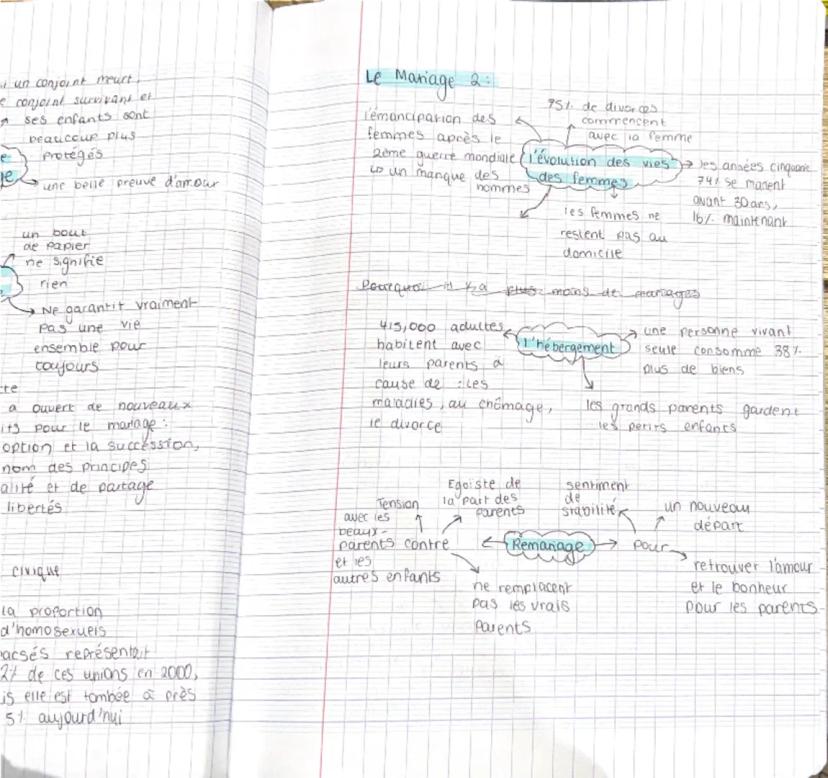 un conjoint meurt,
conjoint survivant et
ses enfants sont
beaucoup plus
protégés
une belle preuve d'amour
un bout
de papier
ne signifie
rien
Ne garantit vraiment
pas une vie
ensemble pour
toujours
a ouvert de nouveaux
pour le mariage:
option et la succession,
nom des principes
et de partage
libertés
civique
la proportion
d'homosexuels
représentait
2% de ces unions en 2000,
elle est tombée à près
5% aujourd'hui
Le Mariage 2:
l'émancipation des
femmes après le
2ème guerre mondiale
↳ un manque des
hommes
75% de divorces
commencent
avec la femme
l'évolution des vies
des femmes
les années cinquante
74% se marient
avant 30 ans,
16% maintenant
les femmes ne
restent pas au
domicile
Pourquoi il y a plus moins de mariages
415,000 adultes
habitent avec
leurs parents à
cause de : les
maladies, au chômage,
le divorce
l'hébergement
une personne vivant
seule consomme 38%
plus de biens
les grands parents gardent
les petits enfants
Tension
avec les
beaux-
parents contre
et les
autres enfants
Egoïste de
la part des
parents
sentiment
de
stabilité
un nouveau
départ
Remariage
pour
ne remplacent
pas les vrais
parents
retrouver l'amour
et le bonheur
pour les parents